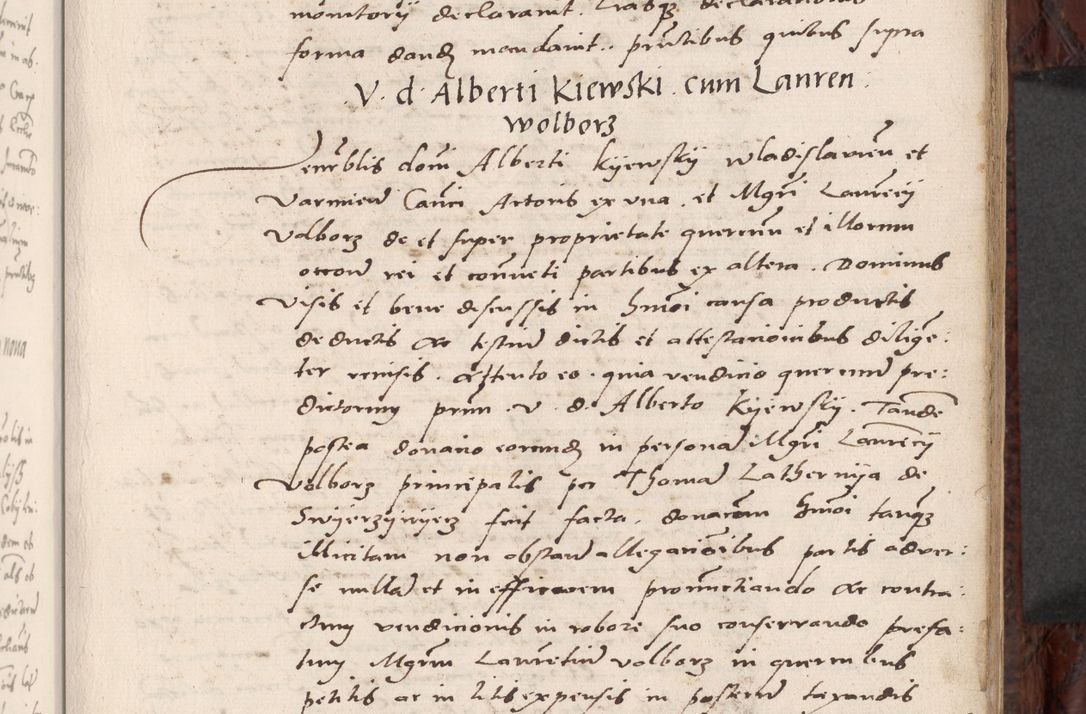 monitorij declaravit. Hasq declarationis
forma dand mandavit.. pntibus quibus supra
V. d. Alberti Kiewski. cum Lauren.
wolborz
Venerblis domi Alberti Kijewskij wladislavien et
Varmien Canci Actoris ex una. et Mgri Laurecij
Volborz de et super proprietate quercuum et illorum
occon rei et conveti partibus ex altera. Dominus
Visis et bene discussis in hmoi causa productis
deductis ac testium dictis et attestacionibus dilige:
ter revisis. attento eo. quia vendicio quercuum pre:
dictorum prim. v. d. Alberto Kijewskij. Tande
postea donacio eorund in persona Mgri Laurecij
Volborz principalis per Thoma Lathernija de
fuit facta. donacem hmoi tanq
illicitam non obstan allegacioibus partis adver:
se nulla et in efficacem pronuctiando ac contra:
ctum vendicionis in robore suo conservando prefa:
tum Mgrm Lauretium volborz in quercubus
petitis ac in litis expensis in posterum taxandis